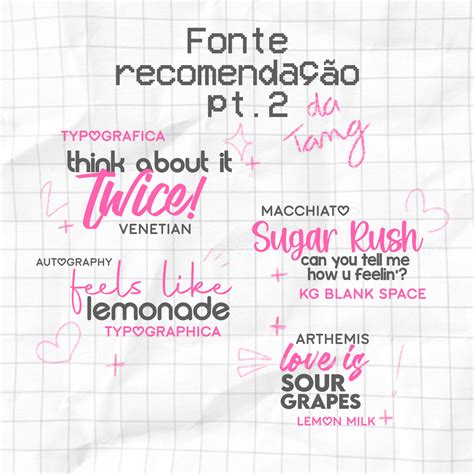 Fonte
recomendação
pt.2 da
Tang
TYPOGRAFICA
think about it
Twice!
VENETIAN
MACCHIATO
Sugar Rush
can you tell me
how u feelin'?
KG BLANK SPACE
AUTOGRAPHY
feels like
lemonade
TYPOGRAPHICA
ARTHEMIS
love is
SOUR
GRAPES
LEMON MILK